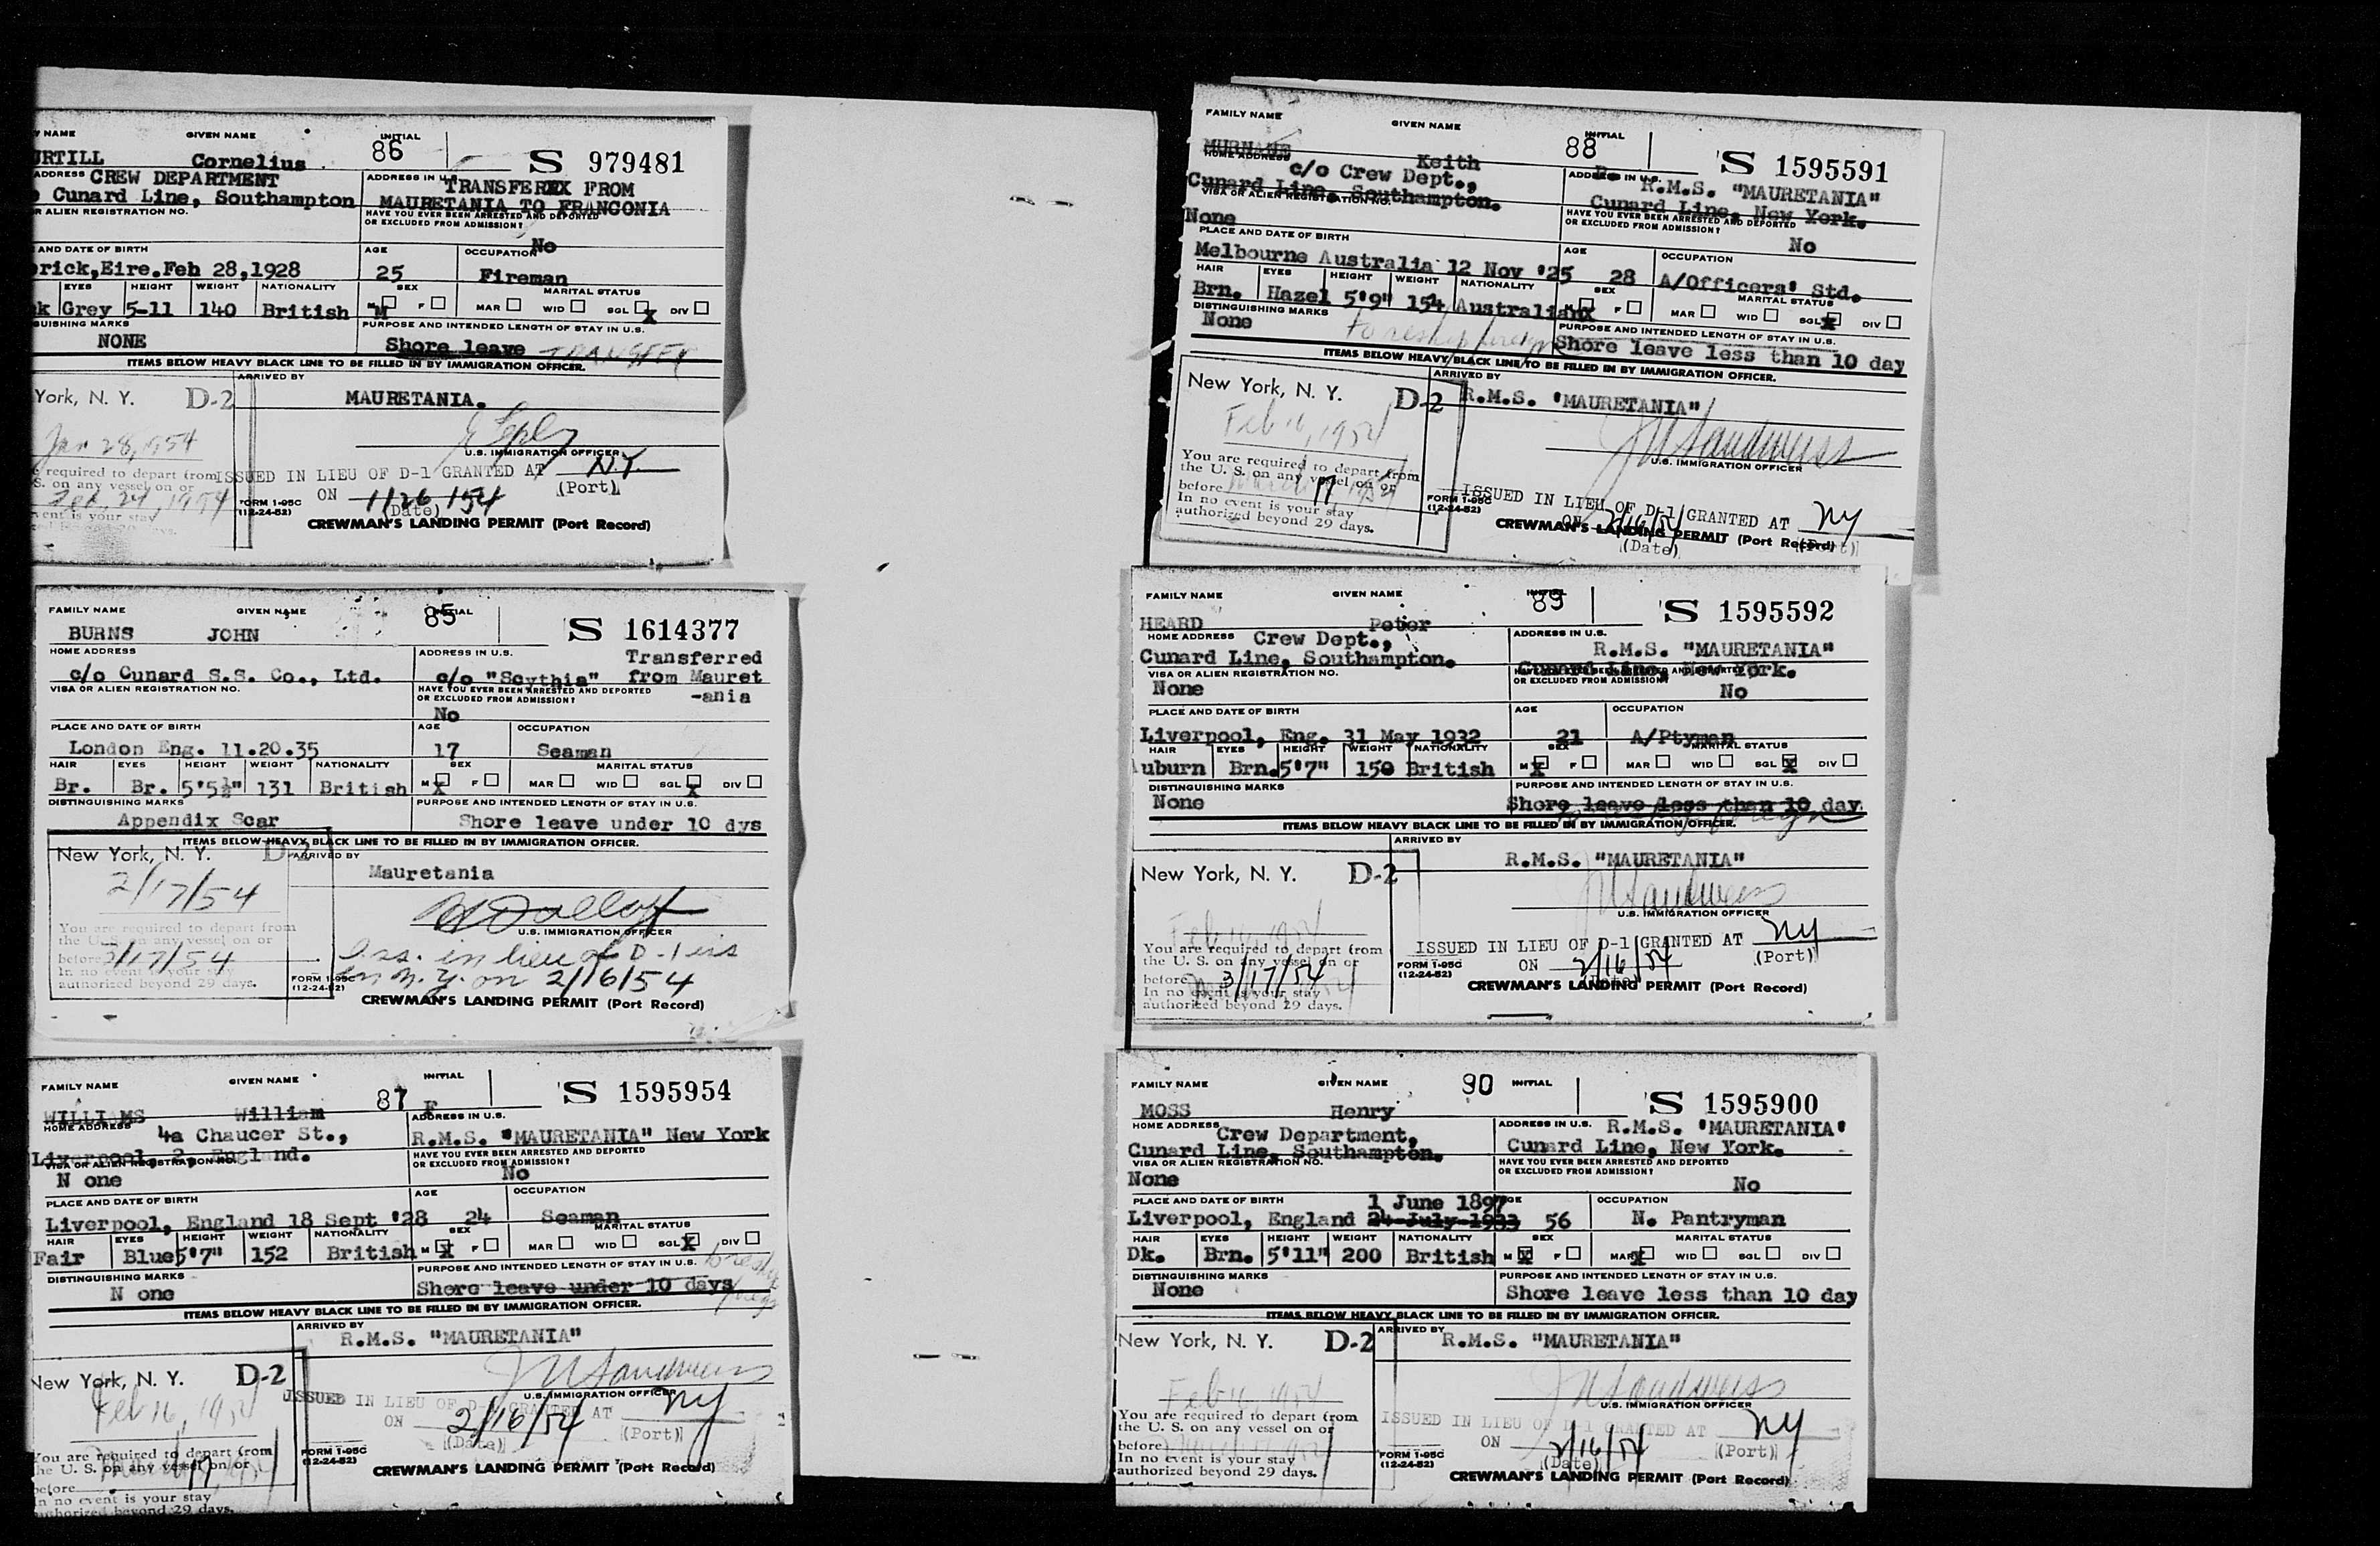 Y NAME GIVEN NAME INITIAL
86
URTILL Cornelius S 979481
ADDRESS CREW DEPARTMENT ADDRESS IN U.S. TRANSFERXX FROM
Cunard Line, Southampton MAURETANIA TO FRANCONIA
R ALIEN REGISTRATION NO. HAVE YOU EVER BEEN ARRESTED AND DEPORTED
OR EXCLUDED FROM ADMISSION?
No
AND DATE OF BIRTH AGE OCCUPATION
rick,Eire.Feb 28,1928 25 Fireman
EYES HEIGHT WEIGHT NATIONALITY SEX MARITAL STATUS
k Grey 5-11 140 British M F MAR WID SGL X DIV
GUISHING MARKS PURPOSE AND INTENDED LENGTH OF STAY IN U.S.
NONE Shore leave TRANSFER
ITEMS BELOW HEAVY BLACK LINE TO BE FILLED IN BY IMMIGRATION OFFICER.
York, N. Y. D-2 ARRIVED BY
MAURETANIA.
Jan 28, 1954
U.S. IMMIGRATION OFFICER
required to depart from ISSUED IN LIEU OF D-1 GRANTED AT N.Y.
S. on any vessel on or ON 1/26/54 (Port)
Feb. 24, 1954 FORM I-95C (Date)
vent is your stay (12-24-52)
CREWMAN'S LANDING PERMIT (Port Record)
FAMILY NAME GIVEN NAME INITIAL
85
BURNS JOHN S 1614377
HOME ADDRESS ADDRESS IN U.S. Transferred
c/o Cunard S.S. Co., Ltd. c/o "Scythia" from Mauret
VISA OR ALIEN REGISTRATION NO. HAVE YOU EVER BEEN ARRESTED AND DEPORTED -ania
OR EXCLUDED FROM ADMISSION?
No
PLACE AND DATE OF BIRTH AGE OCCUPATION
London Eng. 11.20.35 17 Seaman
HAIR EYES HEIGHT WEIGHT NATIONALITY SEX MARITAL STATUS
Br. Br. 5'5½" 131 British M X F MAR WID SGL X DIV
DISTINGUISHING MARKS PURPOSE AND INTENDED LENGTH OF STAY IN U.S.
Appendix Scar Shore leave under 10 dys
ITEMS BELOW HEAVY BLACK LINE TO BE FILLED IN BY IMMIGRATION OFFICER.
New York, N. Y. D-2 ARRIVED BY
2/17/54 Mauretania
U.S. IMMIGRATION OFFICER
You are required to depart from
the U. S. on any vessel on or
before 3/17/54 Iss. in lieu of D-1 iss
In no event is your stay in N.Y. on 2/16/54
authorized beyond 29 days. FORM I-95C
(12-24-52)
CREWMAN'S LANDING PERMIT (Port Record)
FAMILY NAME GIVEN NAME INITIAL
87
WILLIAMS William F S 1595954
HOME ADDRESS 4a Chaucer St., ADDRESS IN U.S.
Liverpool, 3, England. R.M.S. "MAURETANIA" New York
VISA OR ALIEN REGISTRATION NO. HAVE YOU EVER BEEN ARRESTED AND DEPORTED
OR EXCLUDED FROM ADMISSION?
N one No
PLACE AND DATE OF BIRTH AGE OCCUPATION
Liverpool, England 18 Sept '28 24 Seaman
HAIR EYES HEIGHT WEIGHT NATIONALITY SEX MARITAL STATUS
Fair Blue 5'7" 152 British M X F MAR WID SGL X DIV
DISTINGUISHING MARKS PURPOSE AND INTENDED LENGTH OF STAY IN U.S.
N one Shore leave under 10 days
ITEMS BELOW HEAVY BLACK LINE TO BE FILLED IN BY IMMIGRATION OFFICER.
ARRIVED BY
R.M.S. "MAURETANIA"
New York, N. Y. D-2
Feb 16, 1954 U.S. IMMIGRATION OFFICER
ISSUED IN LIEU OF D-1 GRANTED AT NY
ON 2/16/54 (Port)
(Date)
You are required to depart from FORM I-95C
the U. S. on any vessel on or (12-24-52)
before CREWMAN'S LANDING PERMIT (Port Record)
In no event is your stay
authorized beyond 29 days.
FAMILY NAME GIVEN NAME INITIAL
88
MURNANE Keith S 1595591
HOME ADDRESS c/o Crew Dept., ADDRESS IN U.S. R.M.S. "MAURETANIA"
Cunard Line, Southampton. Cunard Line, New York.
VISA OR ALIEN REGISTRATION NO. HAVE YOU EVER BEEN ARRESTED AND DEPORTED
OR EXCLUDED FROM ADMISSION?
None No
PLACE AND DATE OF BIRTH AGE OCCUPATION
Melbourne Australia 12 Nov '25 28 A/Officers' Std.
HAIR EYES HEIGHT WEIGHT NATIONALITY SEX MARITAL STATUS
Brn. Hazel 5'9" 154 Australian M X F MAR WID SGL X DIV
DISTINGUISHING MARKS PURPOSE AND INTENDED LENGTH OF STAY IN U.S.
None to reship foreign Shore leave less than 10 day
ITEMS BELOW HEAVY BLACK LINE TO BE FILLED IN BY IMMIGRATION OFFICER.
New York, N. Y. D-2 ARRIVED BY
R.M.S. "MAURETANIA"
Feb 16, 1954
U.S. IMMIGRATION OFFICER
You are required to depart from
the U. S. on any vessel on or
before ISSUED IN LIEU OF D-1 GRANTED AT NY
In no event is your stay FORM I-95C ON 2/16/54
authorized beyond 29 days. (12-24-52)
CREWMAN'S LANDING PERMIT (Port Record) (Port)
(Date)
FAMILY NAME GIVEN NAME INITIAL
89
HEARD Peter S 1595592
HOME ADDRESS Crew Dept., ADDRESS IN U.S.
Cunard Line, Southampton. R.M.S. "MAURETANIA"
VISA OR ALIEN REGISTRATION NO. Cunard Line, New York.
HAVE YOU EVER BEEN ARRESTED AND DEPORTED
OR EXCLUDED FROM ADMISSION?
None No
PLACE AND DATE OF BIRTH AGE OCCUPATION
Liverpool, Eng. 31 May 1932 21 A/Ptyman
HAIR EYES HEIGHT WEIGHT NATIONALITY SEX MARITAL STATUS
uburn Brn. 5'7" 150 British M X F MAR WID SGL X DIV
DISTINGUISHING MARKS PURPOSE AND INTENDED LENGTH OF STAY IN U.S.
None Shore leave less than 10 day
ITEMS BELOW HEAVY BLACK LINE TO BE FILLED IN BY IMMIGRATION OFFICER.
ARRIVED BY
New York, N. Y. D-2 R.M.S. "MAURETANIA"
Feb 16, 1954
U.S. IMMIGRATION OFFICER
You are required to depart from
the U. S. on any vessel on or ISSUED IN LIEU OF D-1 GRANTED AT NY
before 3/17/54 FORM I-95C ON 2/16/54 (Port)
In no event is your stay (12-24-52) (Date)
authorized beyond 29 days. CREWMAN'S LANDING PERMIT (Port Record)
FAMILY NAME GIVEN NAME 90 INITIAL
MOSS Henry S 1595900
HOME ADDRESS Crew Department, ADDRESS IN U.S. R.M.S. "MAURETANIA"
Cunard Line, Southampton. Cunard Line, New York.
VISA OR ALIEN REGISTRATION NO. HAVE YOU EVER BEEN ARRESTED AND DEPORTED
OR EXCLUDED FROM ADMISSION?
None No
PLACE AND DATE OF BIRTH 1 June 1897 AGE OCCUPATION
Liverpool, England 24 July 1933 56 N. Pantryman
HAIR EYES HEIGHT WEIGHT NATIONALITY SEX MARITAL STATUS
Dk. Brn. 5'11" 200 British M X F MAR X WID SGL DIV
DISTINGUISHING MARKS PURPOSE AND INTENDED LENGTH OF STAY IN U.S.
None Shore leave less than 10 day
ITEMS BELOW HEAVY BLACK LINE TO BE FILLED IN BY IMMIGRATION OFFICER.
New York, N. Y. D-2 ARRIVED BY
R.M.S. "MAURETANIA"
Feb 16, 1954
U.S. IMMIGRATION OFFICER
You are required to depart from
the U. S. on any vessel on or ISSUED IN LIEU OF D-1 GRANTED AT NY
before ON 2/16/54 (Port)
In no event is your stay FORM I-95C (Date)
authorized beyond 29 days. (12-24-52)
CREWMAN'S LANDING PERMIT (Port Record)